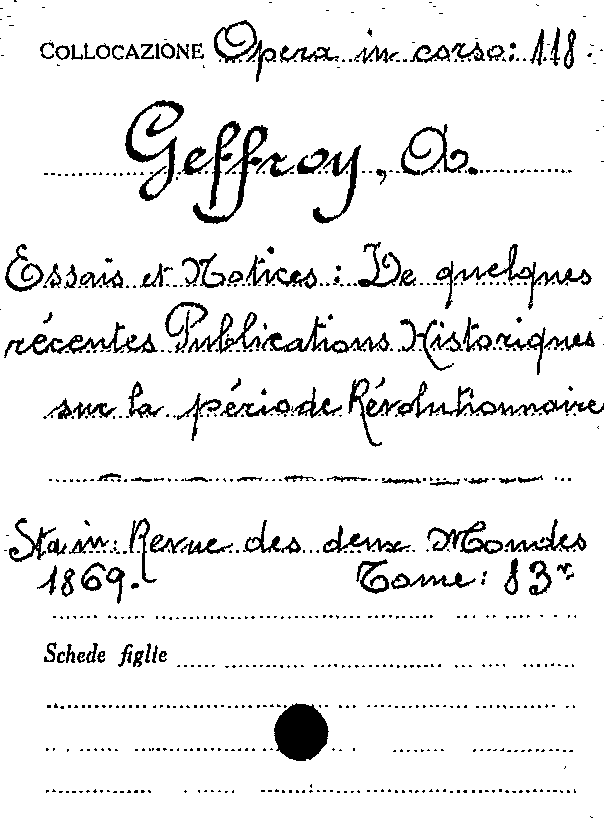 COLLOCAZIONE Opera in corso: 118.
Geffroy, A.
Essais et Notices: De quelques
récentes Publications Historiques
sur la période Révolutionnaire
Sta in: Revue des deux Mondes
1869. Tome: 83
Schede figlie